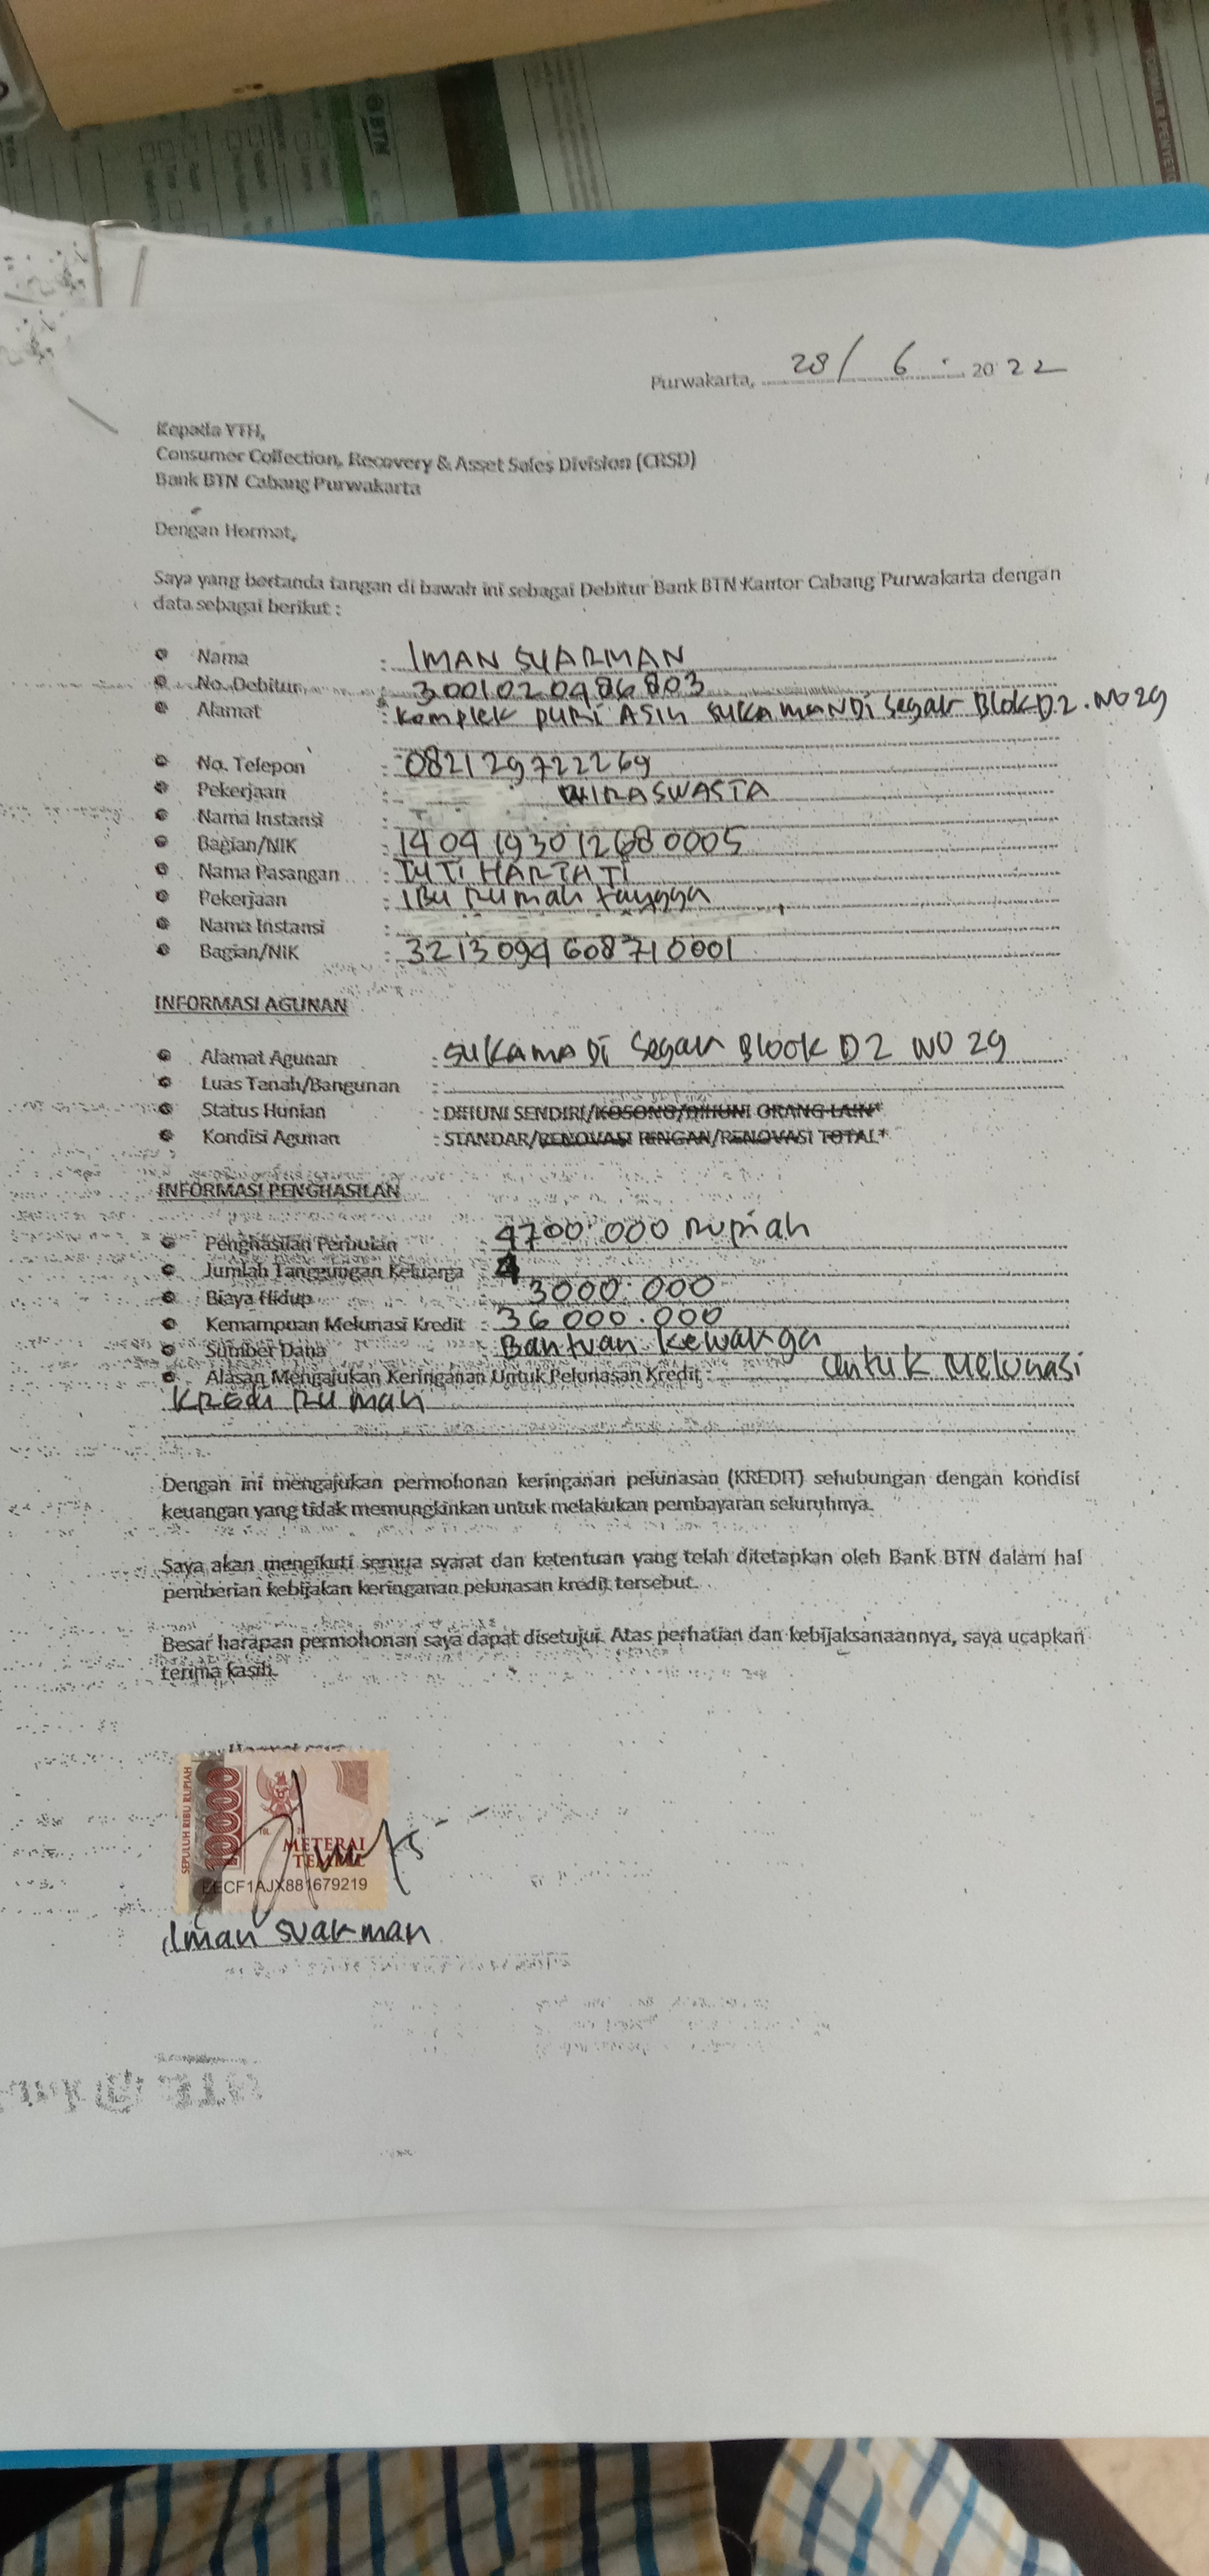 BTN
FORMULIR PENYETO
Purwakarta, 28 / 6 . 2022
Kepada YTH,
Consumer Collection, Recovery & Asset Sales Division (CRSD)
Bank BTN Cabang Purwakarta
Dengan Hormat,
Saya yang bertanda tangan di bawah ini sebagai Debitur Bank BTN Kantor Cabang Purwakarta dengan
data sebagai berikut :
Nama : IMAN SUARMAN
No. Debitur : 3001020486803
Alamat : Komplek PURI ASIH SUKAMANDi Segar Blok D2. NO 29
No. Telepon : 082129722269
Pekerjaan : WIRASWASTA
Nama Instansi :
Bagian/NIK : 1404193012680005
Nama Pasangan : TUTI HARTATI
Pekerjaan : IBu Rumah tangga
Nama Instansi :
Bagian/NIK : 3213094608710001
INFORMASI AGUNAN
Alamat Agunan : SUKAMADi Segar Blook D2 NO 29
Luas Tanah/Bangunan :
Status Hunian : DIHUNI SENDIRI/KOSONG/DIHUNI ORANG LAIN*
Kondisi Agunan : STANDAR/RENOVASI RINGAN/RENOVASI TOTAL*
INFORMASI PENGHASILAN
Penghasilan Perbulan : 4700.000 Rupiah
Jumlah Tanggungan Keluarga : 4
Biaya Hidup : 3000.000
Kemampuan Melunasi Kredit : 36000.000
Sumber Dana : Bantuan Keluarga
Alasan Mengajukan Keringanan Untuk Pelunasan Kredit : untuk Melunasi
KREdi RUmah
Dengan ini mengajukan permohonan keringanan pelunasan (KREDIT) sehubungan dengan kondisi
keuangan yang tidak memungkinkan untuk melakukan pembayaran seluruhnya.
Saya akan mengikuti semua syarat dan ketentuan yang telah ditetapkan oleh Bank BTN dalam hal
pemberian kebijakan keringanan pelunasan kredit tersebut.
Besar harapan permohonan saya dapat disetujui. Atas perhatian dan kebijaksanaannya, saya ucapkan
terima kasih.
SEPULUH RIBU RUPIAH
10000
METERAI
TEMPEL
EECF1AJX881679219
Iman Suarman